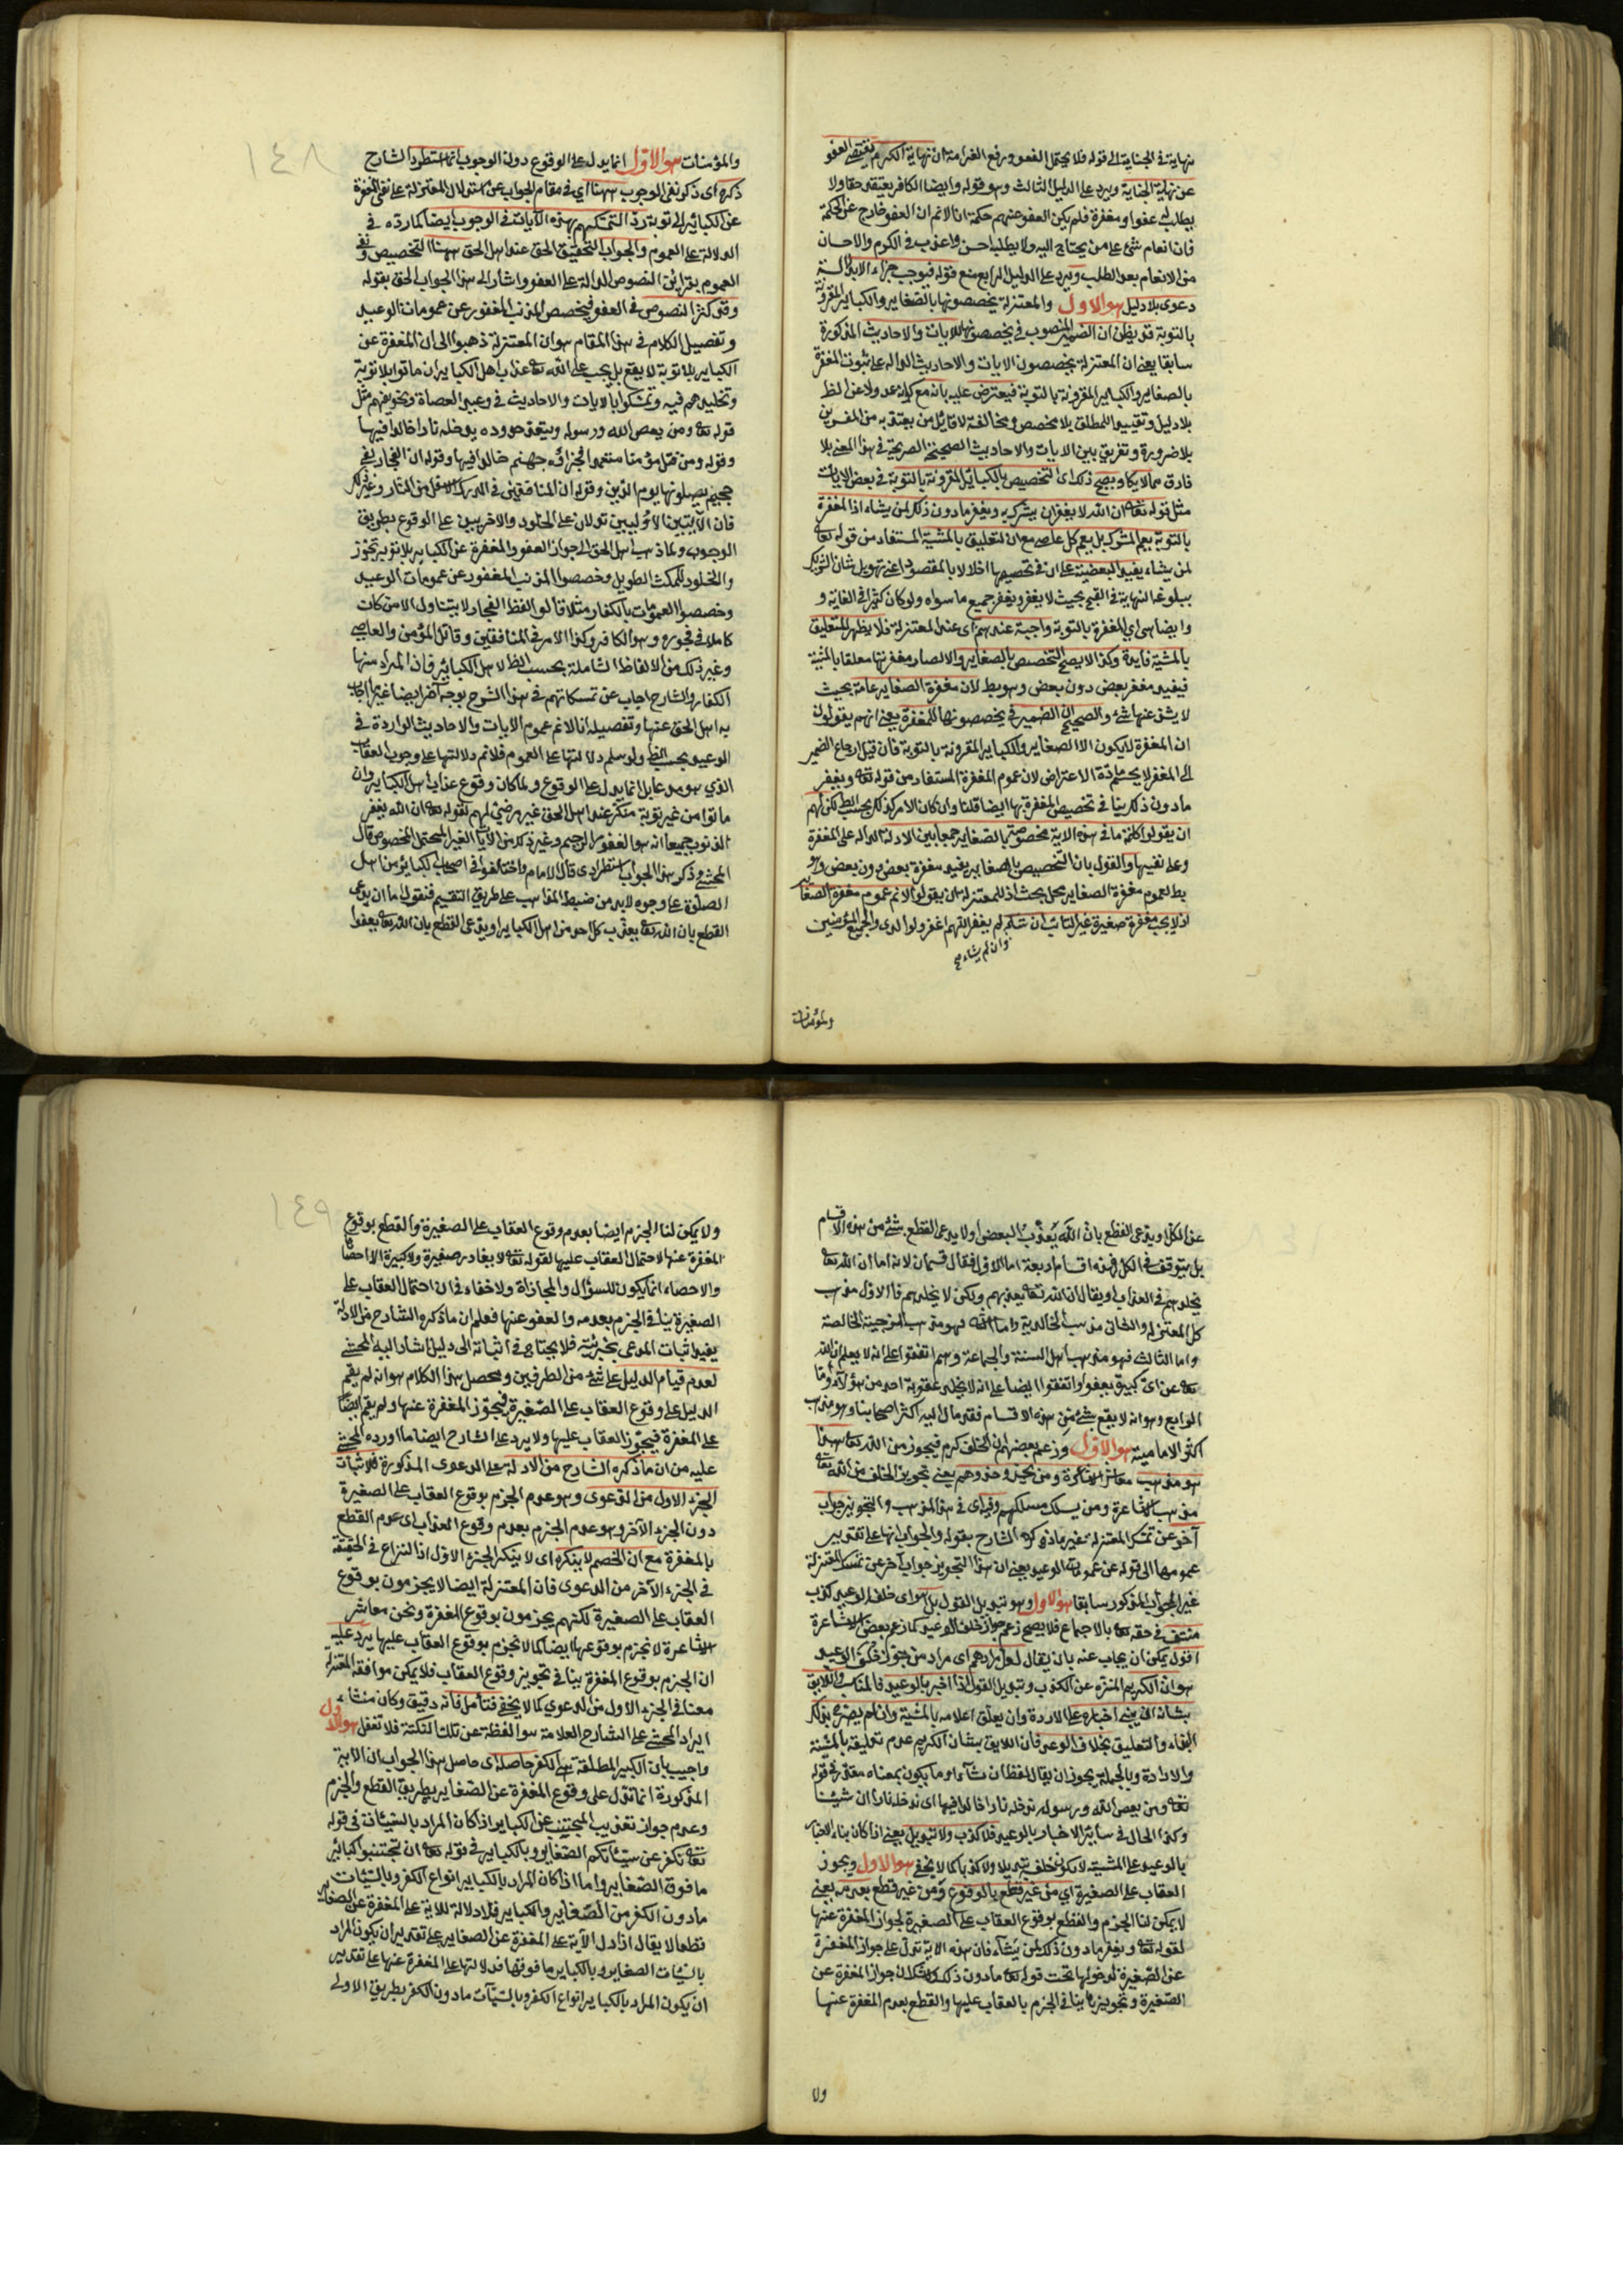 نهاية في الجناية الى قوله فلا يحتمل العفو ورفع الغرامة ان نهاية الكرم يقتضي العفو
عن نهاية الجناية ويرد على الدليل الثالث وهو قوله وايضا الكافر يعتقده حقا ولا
يطلب له عفوا ومغفرة فلم يكن العفو عنهم حكمة انا لا نم ان العفو خارج عن الحكمة
فان انعام شئ على من يحتاج اليه ولا يطلب احسن واعذب في الكرم والاحسان
من الانعام بعد الطلب ويرد على الدليل الرابع منع قوله فيوجب جزاء الابد البتة
دعوى بلا دليل هو الاول والمعتزلة يخصصونها بالصغاير والكباير المقرونة
بالتوبة قد يظن ان الضمير المنصوب في يخصصونها للايات والاحاديث المذكورة
سابقا يعني ان المعتزلة يخصصون الايات والاحاديث الدالة على ثبوت المغفرة
بالصغاير والكباير المقرونة بالتوبة فيعترض عليه بانه مع كونه عدولا عن الظ
بلا دليل وتقييد المطلق بلا مخصص ومخالفة لاقاويل من يعتد به من المفسرين
بلا ضرورة وتفريق بين الايات والاحاديث الصحيحة الصريحة في هذا المعنى بلا
فارق مما لا يكاد يصح ذلك اى التخصيص بالكباير المقرونة بالتوبة في بعض الايات
مثل قوله تعه ان الله لا يغفر ان يشرك به ويغفر ما دون ذلك لمن يشاء اذ المغفرة
بالتوبة يعم المشرك بل يعم كل عاص مع ان التعليق بالمشية المستفاد من قوله تعه
لمن يشاء يفيد البعضية على ان في تخصيصها اخلالا بالمقصود اعني تهويل شان الشرك
ببلوغه النهاية في القبح بحيث لا يغفر ويغفر جميع ما سواه ولو كان كبيرا في الغاية و
وايضا هى اي المغفرة بالتوبة واجبة عندهم اى عند المعتزلة فلا يظهر للتعليق
بالمشية فايدة وكذا لا يصح التخصيص بالصغاير والا لصار مغفرتها معلقا بالمشية
فيفيد مغفرة بعض دون بعض وهو بط لان مغفرة الصغاير عامة بحيث
لا يشذ عنها شئ والصحيح ان الضمير في يخصصونها للمغفرة يعني انهم يقولون
ان المغفرة لا يكون الا الصغاير والكباير المقرونة بالتوبة فان قيل ارجاع الضمير
الى المغفرة لا يحسم مادة الاعتراض لان عموم المغفرة المستفاد من قوله تعه ويغفر
ما دون ذلك ينافي تخصيص المغفرة بها ايضا قلنا وان كان الامر كذلك بحسب الظ لكن لهم
ان يقولوا كلمة ما في هذه الاية مخصوصة بالصغاير جمعا بين الادلة الدالة على المغفرة
وعلى نفيها والقول بان التخصيص بالصغاير يفيد مغفرة بعض دون بعض وهو
بط لعموم مغفرة الصغاير محل بحث اذ للمعتزلة ان يقولوا لا نم عموم مغفرة الصغاير
اذ لا يجب مغفرة صغيرة غير التائب ان شاء لم يغفر اللهم اغفر لوالدي والجميع المؤمنين
وان لم يشاء صح
والمؤمنات
١٤٨
والمؤمنات هو الاول انما يدل على الوقوع دون الوجوب انما استطرد الشارح
ذكره اى ذكر نفى الوجوب ههنا اي في مقام الجواب عن استدلال المعتزلة على نفى المغفرة
عن الكبائر بلا توبة رد التمسكهم بهذه الآيات في الوجوب ايضا كما رده في
الدلالة على العموم والجواب التحقيق الحق عند اهل الحق ههنا التخصيص ونفى
العموم بقرائن النصوص الدالة على العفو واشار الى هذا الجواب الحق بقوله
وقد كثر النصوص في العفو فيخصص المذنب المغفور عن عمومات الوعيد
وتفصيل الكلام في هذا المقام هو ان المعتزلة ذهبوا الى ان المغفرة عن
الكباير بلا توبة لا يقع بل يجب على الله تعه عذاب اهل الكباير ان ماتوا بلا توبة
وتخليدهم فيه وتمسكوا بالايات والاحاديث في وعيد العصاة وتخويفهم مثل
قوله تعه ومن يعص الله ورسوله ويتعد حدوده يدخله نارا خالدا فيها
وقوله ومن قتل مؤمنا متعمدا فجزاؤه جهنم خالدا فيها وقوله ان الفجار لفي
جحيم يصلونها يوم الدين وقوله ان المنافقين في الدرك الاسفل من النار وغير ذلك
فان الآيتين الاوليين تدلان على الخلود والاخريين على الوقوع بطريق
الوجوب ولما ذهب اهل الحق الى جواز العفو والمغفرة عن الكباير بلا توبة تجوز
والخلود للمكث الطويل وخصصوا المذنب المغفور عن عمومات الوعيد
وخصصوا العمومات بالكفار مثلا قالوا لفظ الفجار لا يتناول الا من كان
كاملا في فجوره وهو الكافر وكذا الامر في المنافقين وقاتل المؤمن والعاصي
وغير ذلك من الالفاظ الشاملة بحسب الظ لاهل الكبائر فان المراد منها
الكفار والشارح اجاب عن تمسكاتهم في هذا الشرح بوجه آخر ايضا غير ما اجاب
به اهل الحق عنها وتفصيله انا لا نم عموم الايات والاحاديث الواردة في
الوعيد بحسب الظ ولو سلم دلالتها على العموم فلا نم دلالتها على وجوب العقاب
الذي هو مدعاهم بل انما يدل على الوقوع ولما كان وقوع عذاب اهل الكباير وان
ماتوا من غير توبة منكرا عند اهل الحق غير مرضي لهم لقوله تعه ان الله يغفر
الذنوب جميعا انه هو الغفور الرحيم وغير ذلك من الآيات الغير المحتمل المخصوص قال
المحشي وذكر هذا الجواب استطرادى قال الامام واختلفوا في اصحاب الكباير من اهل
الصلوة على وجوه لابد من ضبط المذاهب على طريق التقسيم فنقول اما ان يدعى
القطع بان الله تعه يعذب كل احد من اهل الكباير او يدعى القطع بان الله تعه يعفوا
عن الكل او يدعى القطع بان الله يعذب البعض او لا يدعى القطع بشئ من هذه الاقسام
بل يتوقف في الكل فهذه اقسام اربعة اما الاول فقال قسمان لانه اما ان الله تعه
يخلدهم في العذاب او يقال ان الله تعه يعذبهم ولكن لا يخلدهم فالاول مذهب
كل المعتزلة والثانى مذهب الخالدية واما الثاني فهو مذهب المرجئة الخالصة
واما الثالث فهو مذهب اهل السنة والجماعة وهم اتفقوا على انه لا يعلم ان الله
تعه عن اى كبيرة يعفوا واتفقوا ايضا على انه لا يخلد عقوبة احد من هؤلاء واما
الرابع وهو انه لا يقع بشئ من هذه الاقسام فقد مال اليه اكثر اصحابنا وهو مذهب
اكثر الامامية هو الاول وزعم بعضهم ان الخلف كرم فيجوز من الله تعه هذا
هو مذهب معاشر الاشاعرة ومن يحذو حذوهم يعنى تجويز الخلف من الله تعه
مذهب الاشاعرة ومن يسلك مسلكهم وقيل اى في هذا المذهب والتجويز جواب
آخر عن تمسك المعتزلة غير ما ذكره الشارح بقوله والجواب انها على تقدير
عمومها الى قوله عن عمومات الوعيد يعنى ان هذا التجويز جواب آخر عن تمسك المعتزلة
غير الجواب المذكور سابقا هو الاول وهو تبديل القول بل هو اى خلف الوعيد كذب
منتف في حقه تعه بالاجماع فلا يصح زعم جواز خلف الوعيد كما زعم بعض الاشاعرة
اقول يمكن ان يجاب عنه بان يقال لعل مرادهم اى مراد من جوز خلف الوعيد
هو ان الكريم المنزه عن الكذب وتبديل القول اذا اخبر بالوعيد فالمناسب واللايق
بشانه ان يبنى اخباره على الارادة وان يعلق اعلامه بالمشية وان لم يصرح بذلك
البناء والتعليق بخلاف الوعد فان اللايق بشان الكريم عدم تعليقه بالمشية
والارادة وبالجملة يجوز ان يقال لفظ ان شاء او ما يكون بمعناه مقدر في قوله
تعه ومن يعص الله ورسوله ندخله نارا خالدا فيها اى ندخله نارا ان شئنا
وكذا الحال في ساير الاخبار بالوعيد فلا كذب ولا تبديل يعنى اذا كان بناء الاخبار
بالوعيد على المشية لا يكون خلفه تبديلا ولا كذبا كما لا يخفى هو الاول ويجوز
العقاب على الصغيرة اي من غير قطع بالوقوع ومن غير قطع بعدمه يعنى
لا يمكن لنا الجزم والقطع بوقوع العقاب على الصغيرة لجواز المغفرة عنها
لقوله تعه ويغفر ما دون ذلك لمن يشاء فان هذه الاية تدل على جواز المغفرة
عن الصغيرة لدخولها تحت قوله تعه ما دون ذلك ولا شك ان جواز المغفرة عن
الصغيرة وتجويزها ينافي الجزم بالعقاب عليها والقطع بعدم المغفرة عنها
ولا
١٤٩
ولا يمكن لنا الجزم ايضا بعدم وقوع العقاب على الصغيرة والقطع بوقوع
المغفرة عنها لاحتمال العقاب عليها لقوله تعه لا يغادر صغيرة ولا كبيرة الا احصاها
والاحصاء انما يكون للسؤال والمجازاة ولا خفاء في ان احتمال العقاب على
الصغيرة ينافي الجزم بعدمه والعفو عنها فعلم ان ما ذكره الشارح من الادلة
يفيد اثبات المدعى بجزئيه فلا يحتاج في اثباته الى دليل اشار اليه المحشي
لعدم قيام الدليل على شئ من الطرفين ومحصل هذا الكلام هو انه لم يقم
الدليل على وقوع العقاب على الصغيرة فيجوز المغفرة عنها ولم يقم ايضا
على المغفرة فيجوز العقاب عليها ولا يرد على الشارح ايضا ما اورده المحشي
عليه من ان ما ذكره الشارح من الادلة على المدعوى المذكورة فلا ثبات
الجزء الاول من الدعوى وهو عدم الجزم بوقوع العقاب على الصغيرة
دون الجزء الآخر وهو عدم الجزم بعدم وقوع العذاب اى عدم القطع
بالمغفرة مع ان الخصم لا ينكره اى لا ينكر الجزء الاول اذ النزاع في الحقيقة
في الجزء الآخر من الدعوى فان المعتزلة ايضا لا يجزمون بوقوع
العقاب على الصغيرة لكنهم يجزمون بوقوع المغفرة ونحن معاشر
الاشاعرة لا نجزم بوقوعها ايضا كما لا نجزم بوقوع العقاب عليها يرد عليه
ان الجزم بوقوع المغفرة ينافي تجويز وقوع العقاب فلا يمكن موافقة المعتزلة
معنا في الجزء الاول من الدعوى كما لا يخفى فتأمل فانه دقيق وكان منشاء
ايراد المحشي على الشارح العلامة هو الغفلة عن تلك النكتة فلا تغفل هو الاول
واجيب بان الكبير المطلقة هى الكفر حاصله اى حاصل هذا الجواب ان الاية
المذكورة انما تدل على وقوع المغفرة عن الصغاير بطريق القطع والجزم
وعدم جواز تعذيب المجتنب عن الكباير اذا كان المراد بالسيئات في قوله
تعه نكفر عنكم سيئاتكم الصغاير وبالكباير في قوله تعه ان تجتنبوا كبائر
ما فوق الصغاير واما اذا كان المراد بالكباير انواع الكفر وبالسيئات
ما دون الكفر من الصغاير والكباير فلا دلالة للاية على المغفرة عن الصغاير
قطعا لا يقال اذا دل الآية على المغفرة عن الصغاير على تقدير ان يكون المراد
بالسيئات الصغاير وبالكباير ما فوقها فدلالتها على المغفرة عنها على تقدير
ان يكون المراد بالكباير انواع الكفر وبالسيئات ما دون الكفر بطريق الاولى